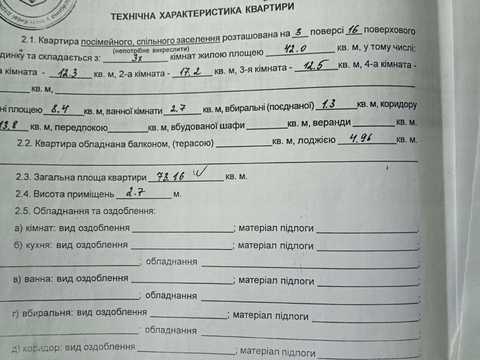 ТЕХНІЧНА ХАРАКТЕРИСТИКА КВАРТИРИ
2.1. Квартира посімейного, спільного заселення розташована на 5 поверсі 16 поверхового
(непотрібне викреслити)
динку та складається з: 3х кімнат жилою площею 42.0 кв. м, у тому числі:
а кімната - 12.3 кв. м, 2-а кімната - 17.2 кв. м, 3-я кімната - 12.5 кв. м, 4-а кімната -
кв. м,
ні площею 8.4 кв. м, ванної кімнати 2.7 кв. м, вбиральні (поєднаної) 1.3 кв. м, коридору
13.8 кв. м, передпокою кв. м, вбудованої шафи кв. м, веранди кв. м.
2.2. Квартира обладнана балконом, (терасою) кв. м, лоджією 4.96 кв. м.
2.3. Загальна площа квартири 73.16 кв. м.
2.4. Висота приміщень 2.7 м.
2.5. Обладнання та оздоблення:
а) кімнат: вид оздоблення ; матеріал підлоги
б) кухня: вид оздоблення ; матеріал підлоги
; обладнання
в) ванна: вид оздоблення ; матеріал підлоги
; обладнання
г) вбиральня: вид оздоблення ; матеріал підлоги
; обладнання
д) коридор: вид оздоблення ; матеріал підлоги